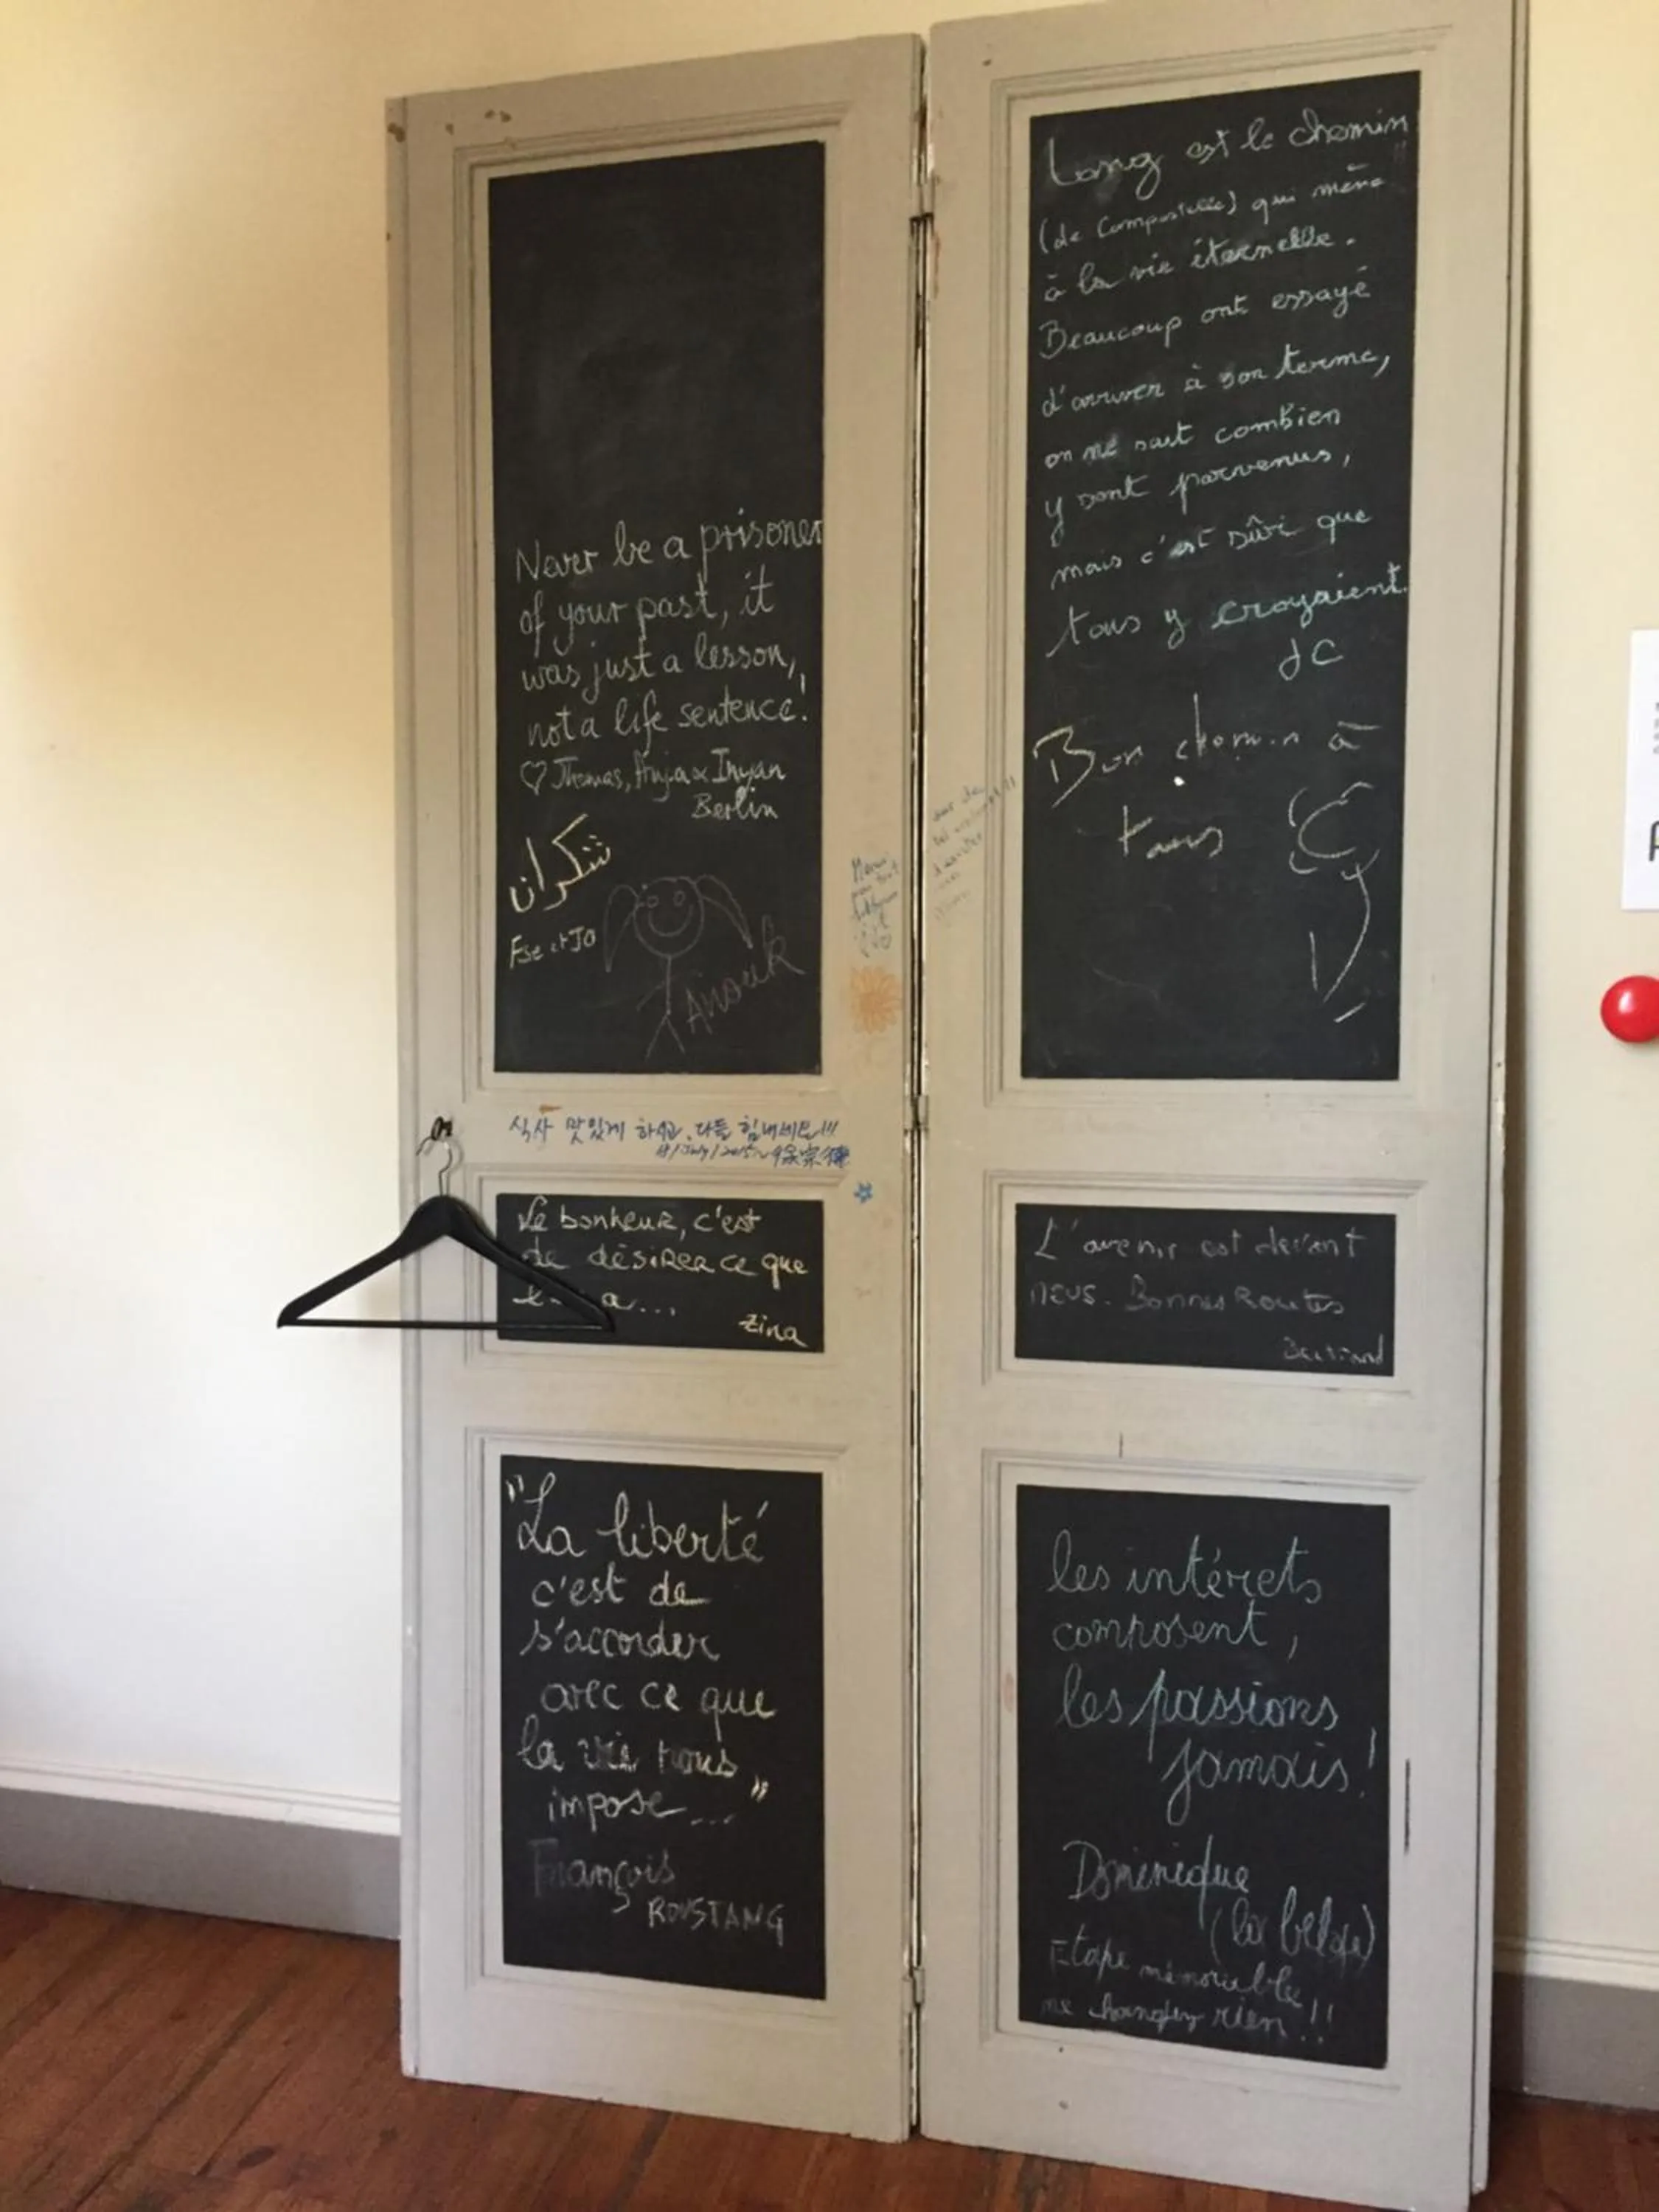 Never be a prisoner
of your past, it
was just a lesson,
not a life sentence!
♡ Thomas, Anja & Inyan
Berlin
شكران
Fse et JO
Anouk
식사 맛있게 하시고, 다들 힘내세요!!!
Le bonheur, c'est
de désirer ce que
a...
Zina
"La liberté
c'est de
s'accorder
avec ce que
la vie nous
impose..."
François
ROUSTANG
Long est le chemin
(de Compostelle) qui mène
à la vie éternelle.
Beaucoup ont essayé
d'arriver à son terme,
on ne sait combien
y sont parvenus,
mais c'est sûr que
tous y croyaient.
JC
Bon chemin à
tous
L'avenir est devant
nous. Bonnes Routes
Bertrand
les intérets
composent,
les passions
jamais!
Dominique
(la belge)
Etape mémorable!!
ne changez rien!!